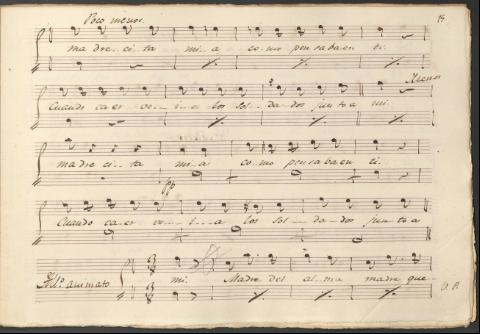 Poco menos.
ma-dre-ci-ta mi-a co-mo pensabaen ti.
Menos
Cuando ca-er ve-i-a los sol-da-dos junto a mi.
madre ci-ta mi-a co-mo pensabaen ti.
pp
Cuando ca-er ve-i-a los sol-da-dos jun-to a
All.º animato
mi. Madre del al-ma madre que-